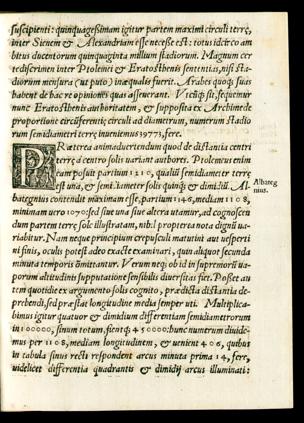 suscipienti: quinquagesimam igitur partem maximi circuli terrę,
inter Sienem & Alexandriam esse necesse est: totus idcirco am
bitus ducentorum quinquaginta millium stadiorum. Magnum cer
te discrimen inter Ptolemei & Eratosthenis sententias, nisi sta
diorum mensura (ut puto) inæqualis fuerit. Arabes quoq; suas
habent de hac re opiniones quas asseverant. Vtcūq; sit, sequemur
nunc Eratosthenis authoritatem, & supposita ex Archimede
proportione circūferentię circuli ad diametrum, numerum stadio
rum semidiametri terrę inueniemus 39773, fere.
PRæterea animaduertendum quod de distantia centri
terrę à centro solis variant authores. Ptolemeus enim
eam posuit partium 1210, qualiū semidiameter terrę
est una, & semidiameter solis quinq; & dimidiū. Al-
Albateg
nius.
bategnius contendit maximam esse, partium 1146, mediam 1108,
minimam uero 1070: sed siue una siue altera utamur, ad cognoscen
dum partem terrę sole illustratam, nihil propterea nota dignū ua-
riabitur. Nam neque principium crepusculi matutini aut uesperti
ni finis, oculis potest adeo exacte examinari, quin aliquot secunda
minuta temporis omittantur. Verum neq; ob id in supremorū ua-
porum altitudinis supputatione sensibilis diuersitas fiet. Posset au
tem quotidie ex argumento solis cognito, prædicta distantia de-
prehendi, sed præstat longitudine media semper uti. Multiplica-
bimus igitur quatuor & dimidium differentiam semidiametrorum
in 100000, sinum totum, fientq; 450000: hunc numerum diuide-
mus per 1108, mediam longitudinem, & uenient 406, quibus
in tabula sinus recti respondent arcus minuta prima 14, fere,
uidelicet differentia quadrantis & dimidij arcus illuminati: